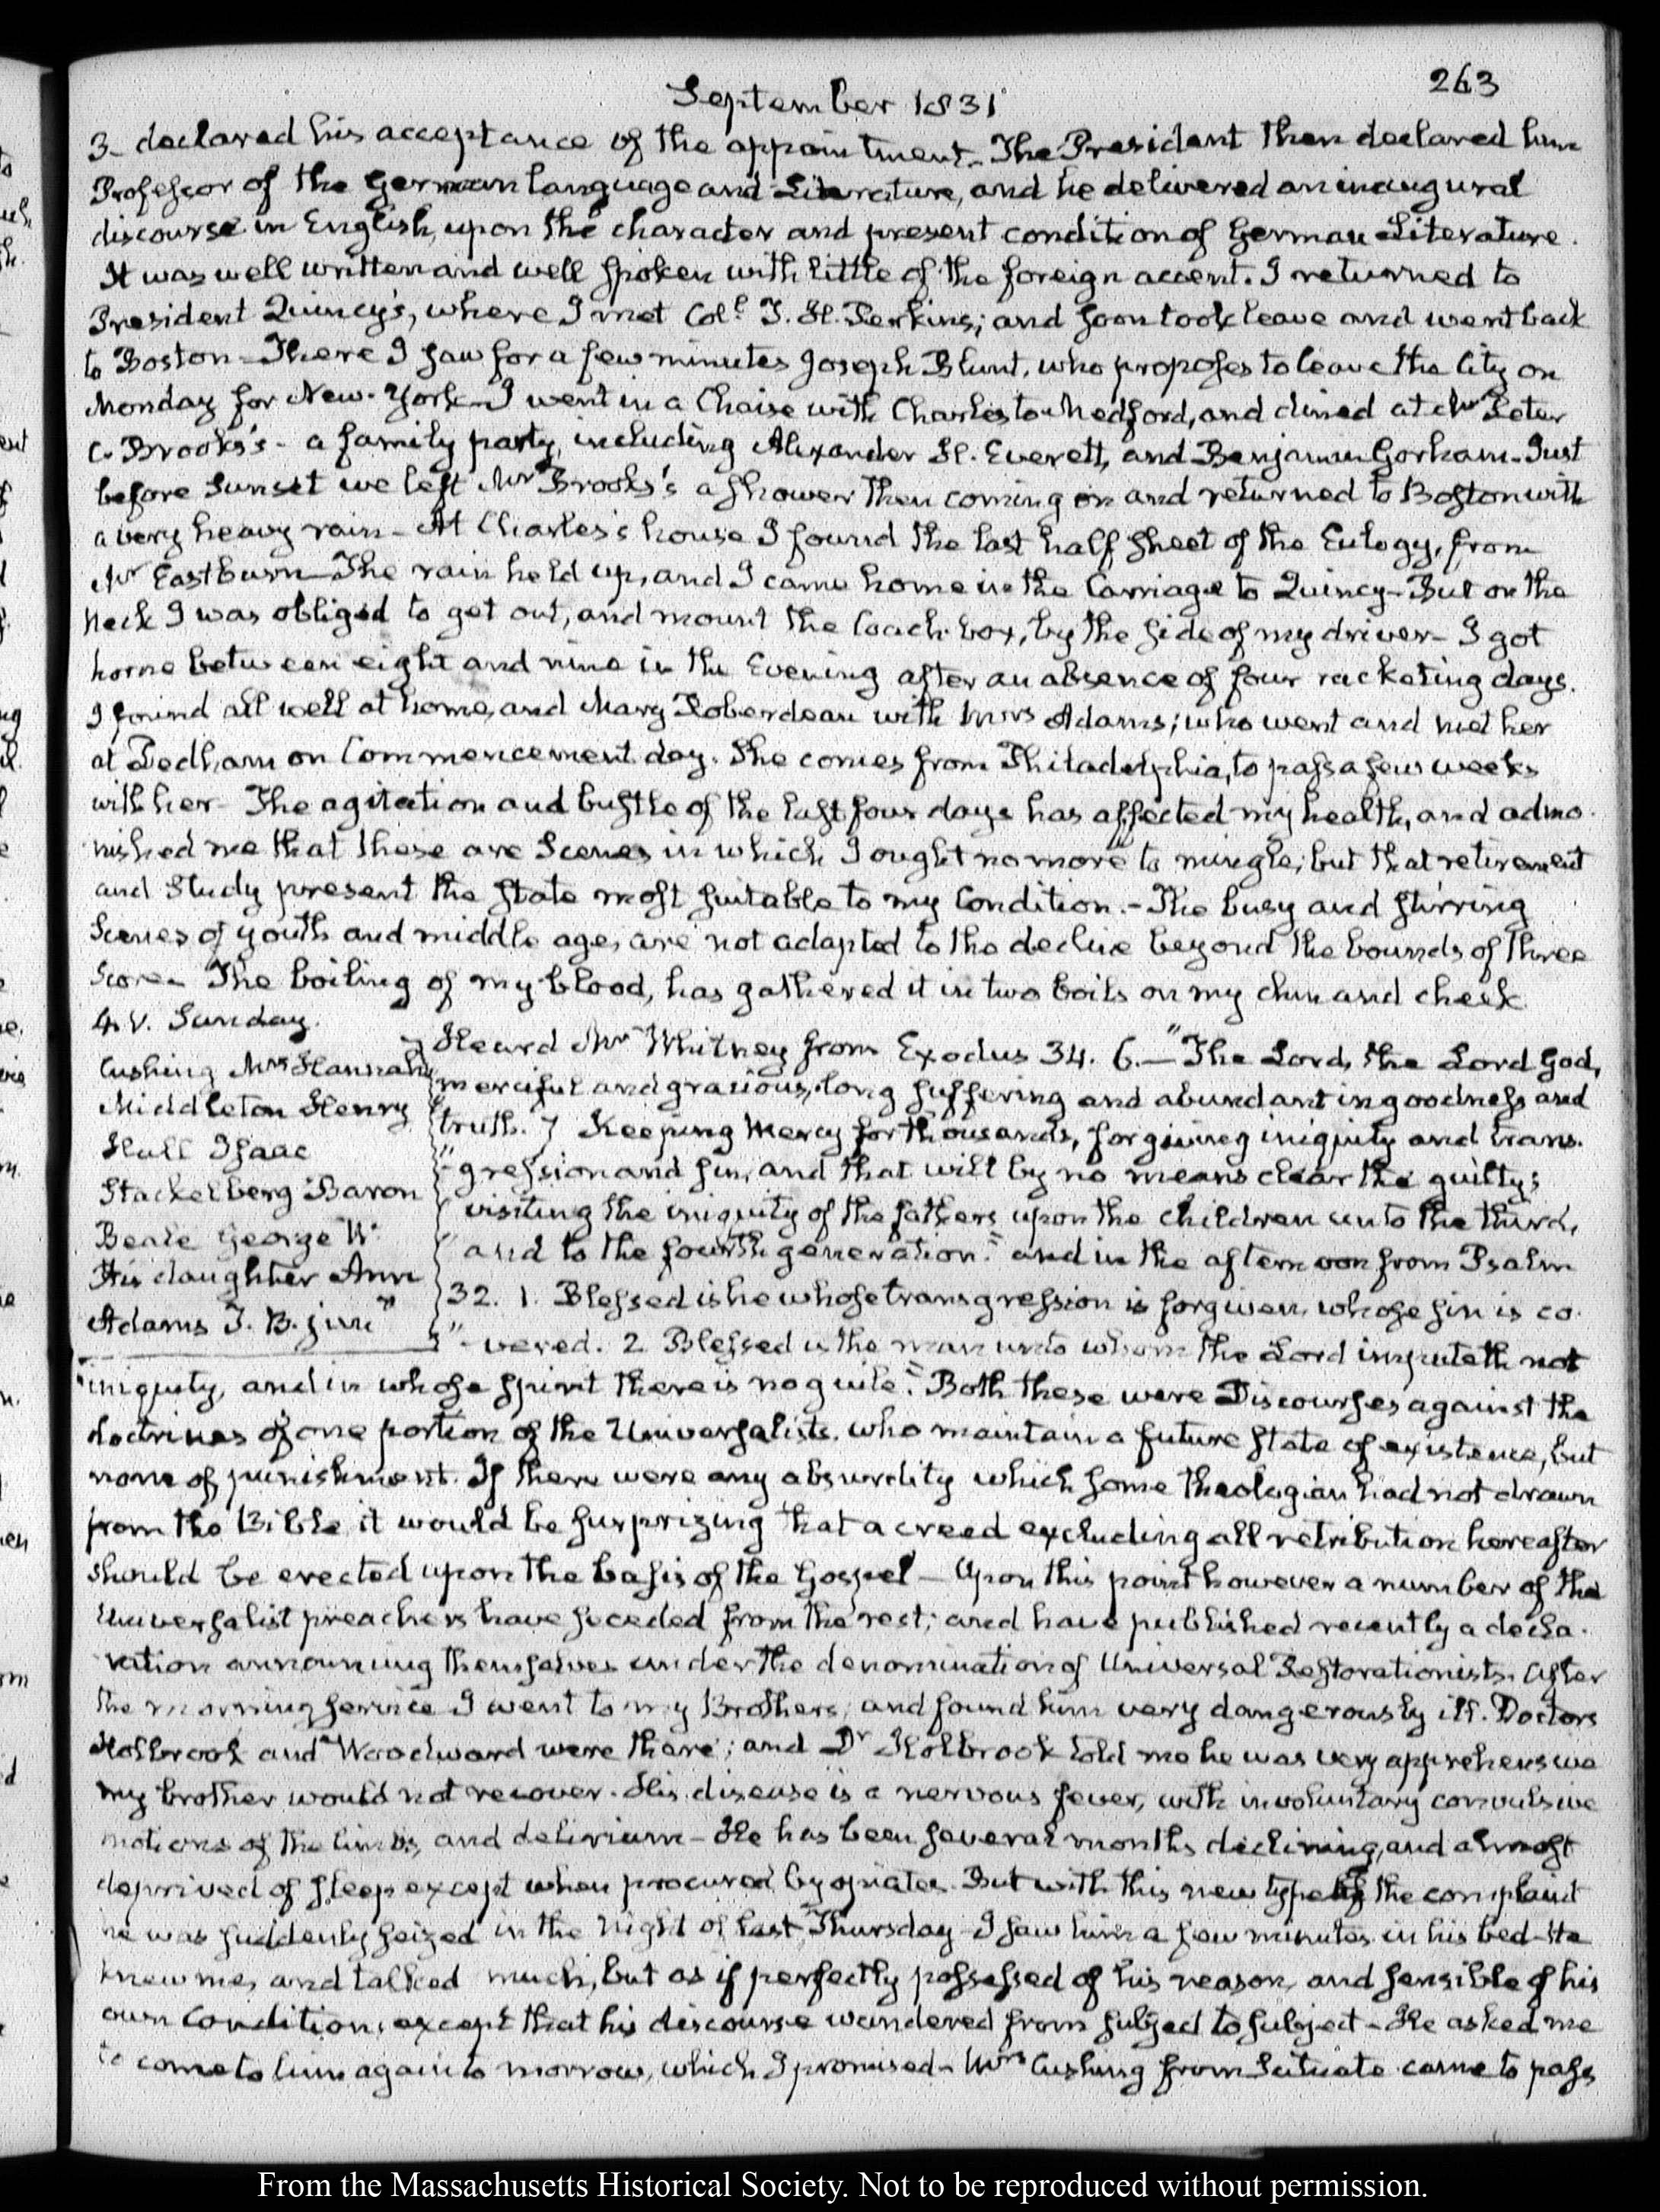 263
September 1831
3– declared his acceptance of the appointment– The President then declared him
Professor of the German language and Literature, and he delivered an inaugural
discourse in English, upon the character and present condition of German Literature.
It was well written and well spoken with little of the foreign accent. I returned to
President Quincy's, where I met Coll. T. H. Perkins; and soon took leave and went back
to Boston– There I saw for a few minutes Joseph Blunt, who proposes to leave the City on
Monday for New-York– I went in a Chaise with Charles to Medford, and dined at Mr Peter
C. Brooks's– a family party, including Alexander H. Everett, and Benjamin Gorham– Just
before Sunset we left Mr Brooks's a shower then coming on and returned to Boston with
a very heavy rain– At Charles's house I found the last half sheet of the Eulogy, from
Mr Eastburn– The rain held up, and I came home in the Carriage to Quincy– But on the
Neck I was obliged to get out, and mount the Coach-box, by the side of my driver– I got
home between eight and nine in the Evening after an absence of four racketing days.
I found all well at home, and Mary Roberdeau with Mrs Adams; who went and met her
at Dedham on Commencement day. She comes from Philadelphia, to pass a few weeks
with her– The agitation and bustle of the last four days has affected my health, and admo-
nished me that these are Scenes in which I ought no more to mingle; but that retirement
and Study present the state most suitable to my Condition.– The busy and stirring
Scenes of youth and middle age, are not adapted to the decline beyond the bounds of three
score– The boiling of my blood, has gathered it in two boils on my chin and cheek.
4. V. Sunday.
Cushing Mrs Hannah
Middleton Henry
Hull Isaac
Stackelberg Baron
Beale George W.
His daughter Ann
Adams T. B. junr
Heard Mr Whitney from Exodus 34. 6.– "The Lord, the Lord God,
merciful and gracious, long suffering and abundant in goodness and
truth. 7 Keeping Mercy for thousands, forgiving iniquity and trans-
"gression and sin, and that will by no means clear the guilty;
visiting the iniquity of the fathers upon the children unto the third,
"and to the fourth generation." and in the afternoon from Psalm
32. 1. Blessed is he whose transgression is forgiven, whose sin is co-
"-vered. 2. Blessed is the man unto whom the Lord imputeth not
"iniquity, and in whose spirit there is no guile." Both these were Discourses against the
doctrines of one portion of the Universalists, who maintain a future state of existence, but
none of punishment. If there were any absurdity which some theologian had not drawn
from the Bible it would be surprizing that a creed excluding all retribution hereafter
should be erected upon the basis of the Gospel– Upon this point however a number of the
Universalist preachers have seceded from the rest; and have published recently a decla-
ration announcing themselves under the denomination of Universal Restorationists. After
the morning service I went to my Brothers, and found him very dangerously ill. Doctors
Holbrook and Woodward were there; and Dr Holbrook told me he was very apprehensive
my brother would not recover. His disease is a nervous fever, with involuntary convulsive
motions of the limbs, and delirium– He has been several months declining, and almost
deprived of sleep except when procured by opiates. But with this new type of the complaint
he was suddenly seized in the Night of last Thursday– I saw him a few minutes in his bed– He
knew me, and talked much, but as if perfectly possessed of his reason, and sensible of his
own condition, except that his discourse wandered from subject to subject– He asked me
to come to him again to morrow, which I promised– Mrs Cushing from Scituate came to pass
From the Massachusetts Historical Society. Not to be reproduced without permission.